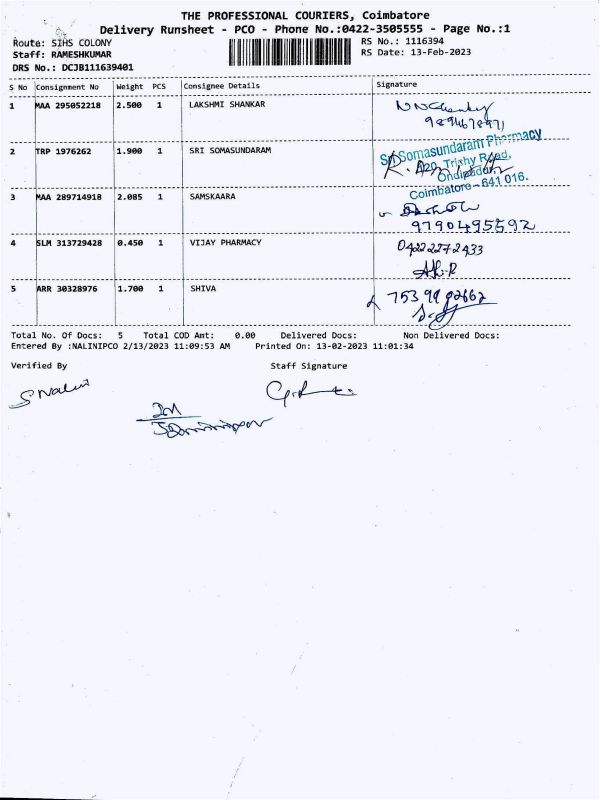 THE PROFESSIONAL COURIERS, Coimbatore
Delivery Runsheet - PCO - Phone No.:0422-3505555 - Page No.:1
Route: SIHS COLONY
RS No.: 1116394
Staff: RAMESHKUMAR
RS Date: 13-Feb-2023
DRS No.: DCJB111639401
S No Consignment No Weight PCS Consignee Details Signature
1 MAA 295052218 2.500 1 LAKSHMI SHANKAR
2 TRP 1976262 1.900 1 SRI SOMASUNDARAM
Sri Somasundaram Pharmacy
A20, Trichy Road,
Ondipudur,
Coimbatore - 641 016.
3 MAA 289714918 2.085 1 SAMSKAARA
9790495592
4 SLM 313729428 0.450 1 VIJAY PHARMACY
0422 2272433
5 ARR 30328976 1.700 1 SHIVA
Total No. Of Docs: 5 Total COD Amt: 0.00 Delivered Docs: Non Delivered Docs:
Entered By :NALINIPCO 2/13/2023 11:09:53 AM Printed On: 13-02-2023 11:01:34
Verified By Staff Signature
S Nalini